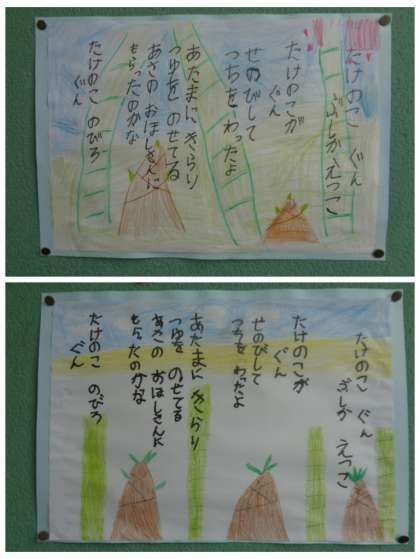 たけのこ ぐん
ぶしか えつこ
たけのこが
ぐん
せのびして
つちを わったよ
あたまに きらり
つゆを のせてる
あさの おほしさんに
もらったのかな
たけのこ のびろ
ぐん
たけのこ ぐん
ぶしか えつこ
たけのこが
ぐん
せのびして
つちを わったよ
あたまに きらり
つゆを のせてる
あさの おほしさんに
もらったのかな
たけのこ のびろ
ぐん